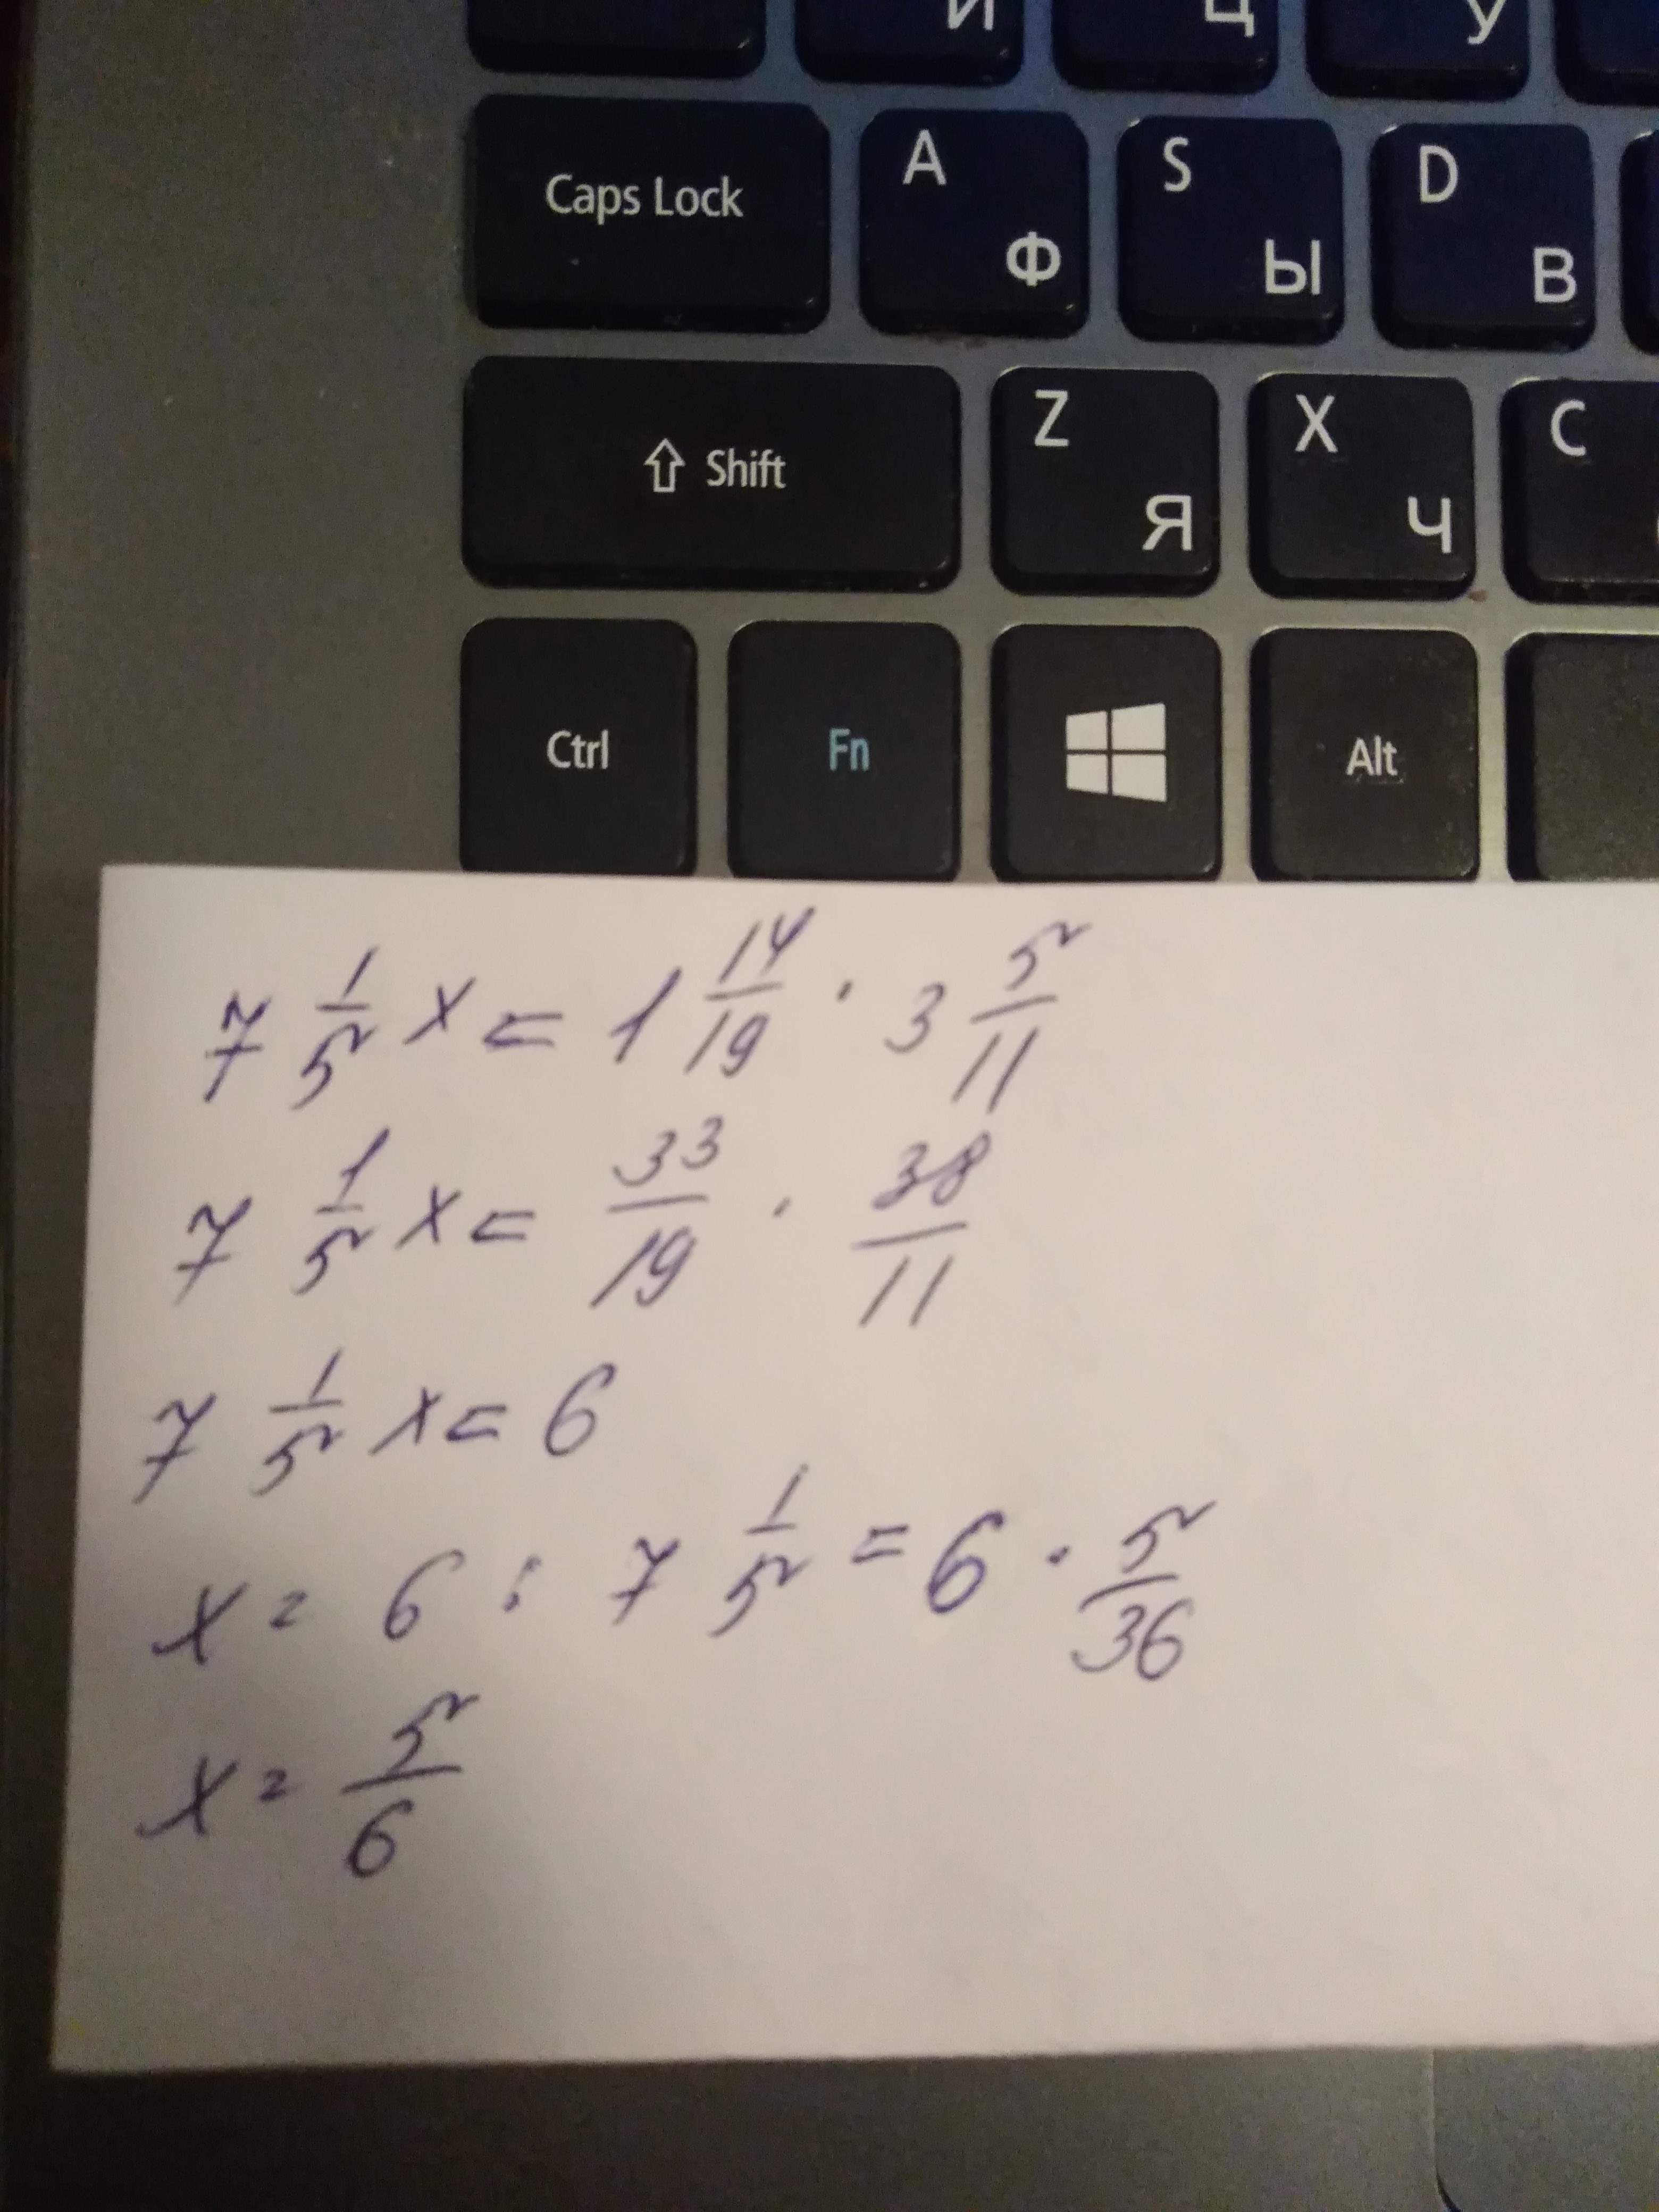 И Ц У
Caps Lock A Ф S Ы D В
⇧ Shift Z Я X Ч C
Ctrl Fn Alt
7 1/5 x = 1 14/19 · 3 5/11
7 1/5 x = 33/19 · 38/11
7 1/5 x = 6
x = 6 : 7 1/5 = 6 · 5/36
x = 5/6